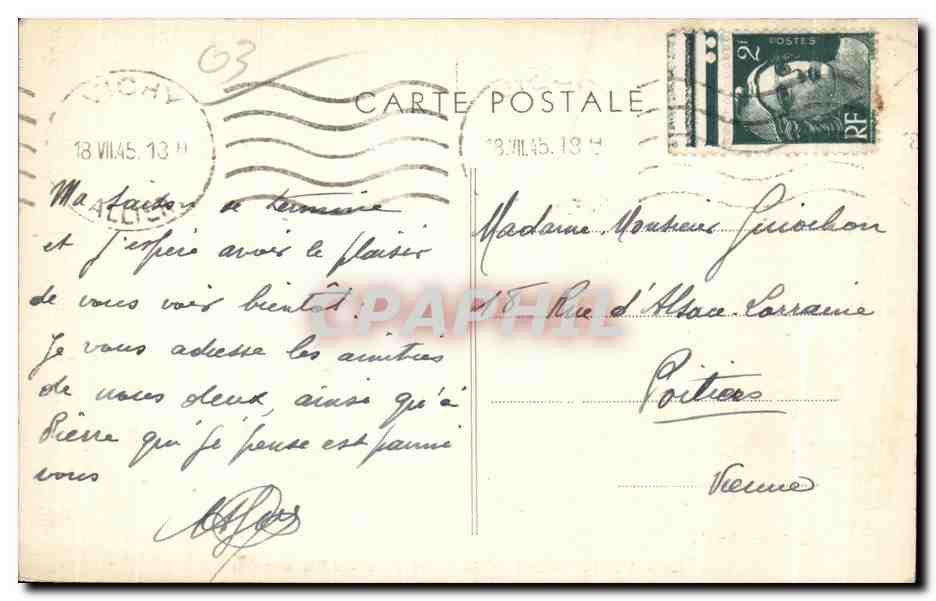 03
VICHY
18.VII.45.18 H
ALLIER
CARTE POSTALE
18.VII.45.18 H
2F
POSTES
RF
Ma saison se termine
et j'espère avoir le plaisir
de vous voir bientôt.
Je vous adresse les amitiés
de nous deux, ainsi qu'à
Pierre qui je pense est parmi
vous
Madame, Monsieur Guiochon
18 Rue d'Alsace-Lorraine
Poitiers
Vienne
CPAPHIL